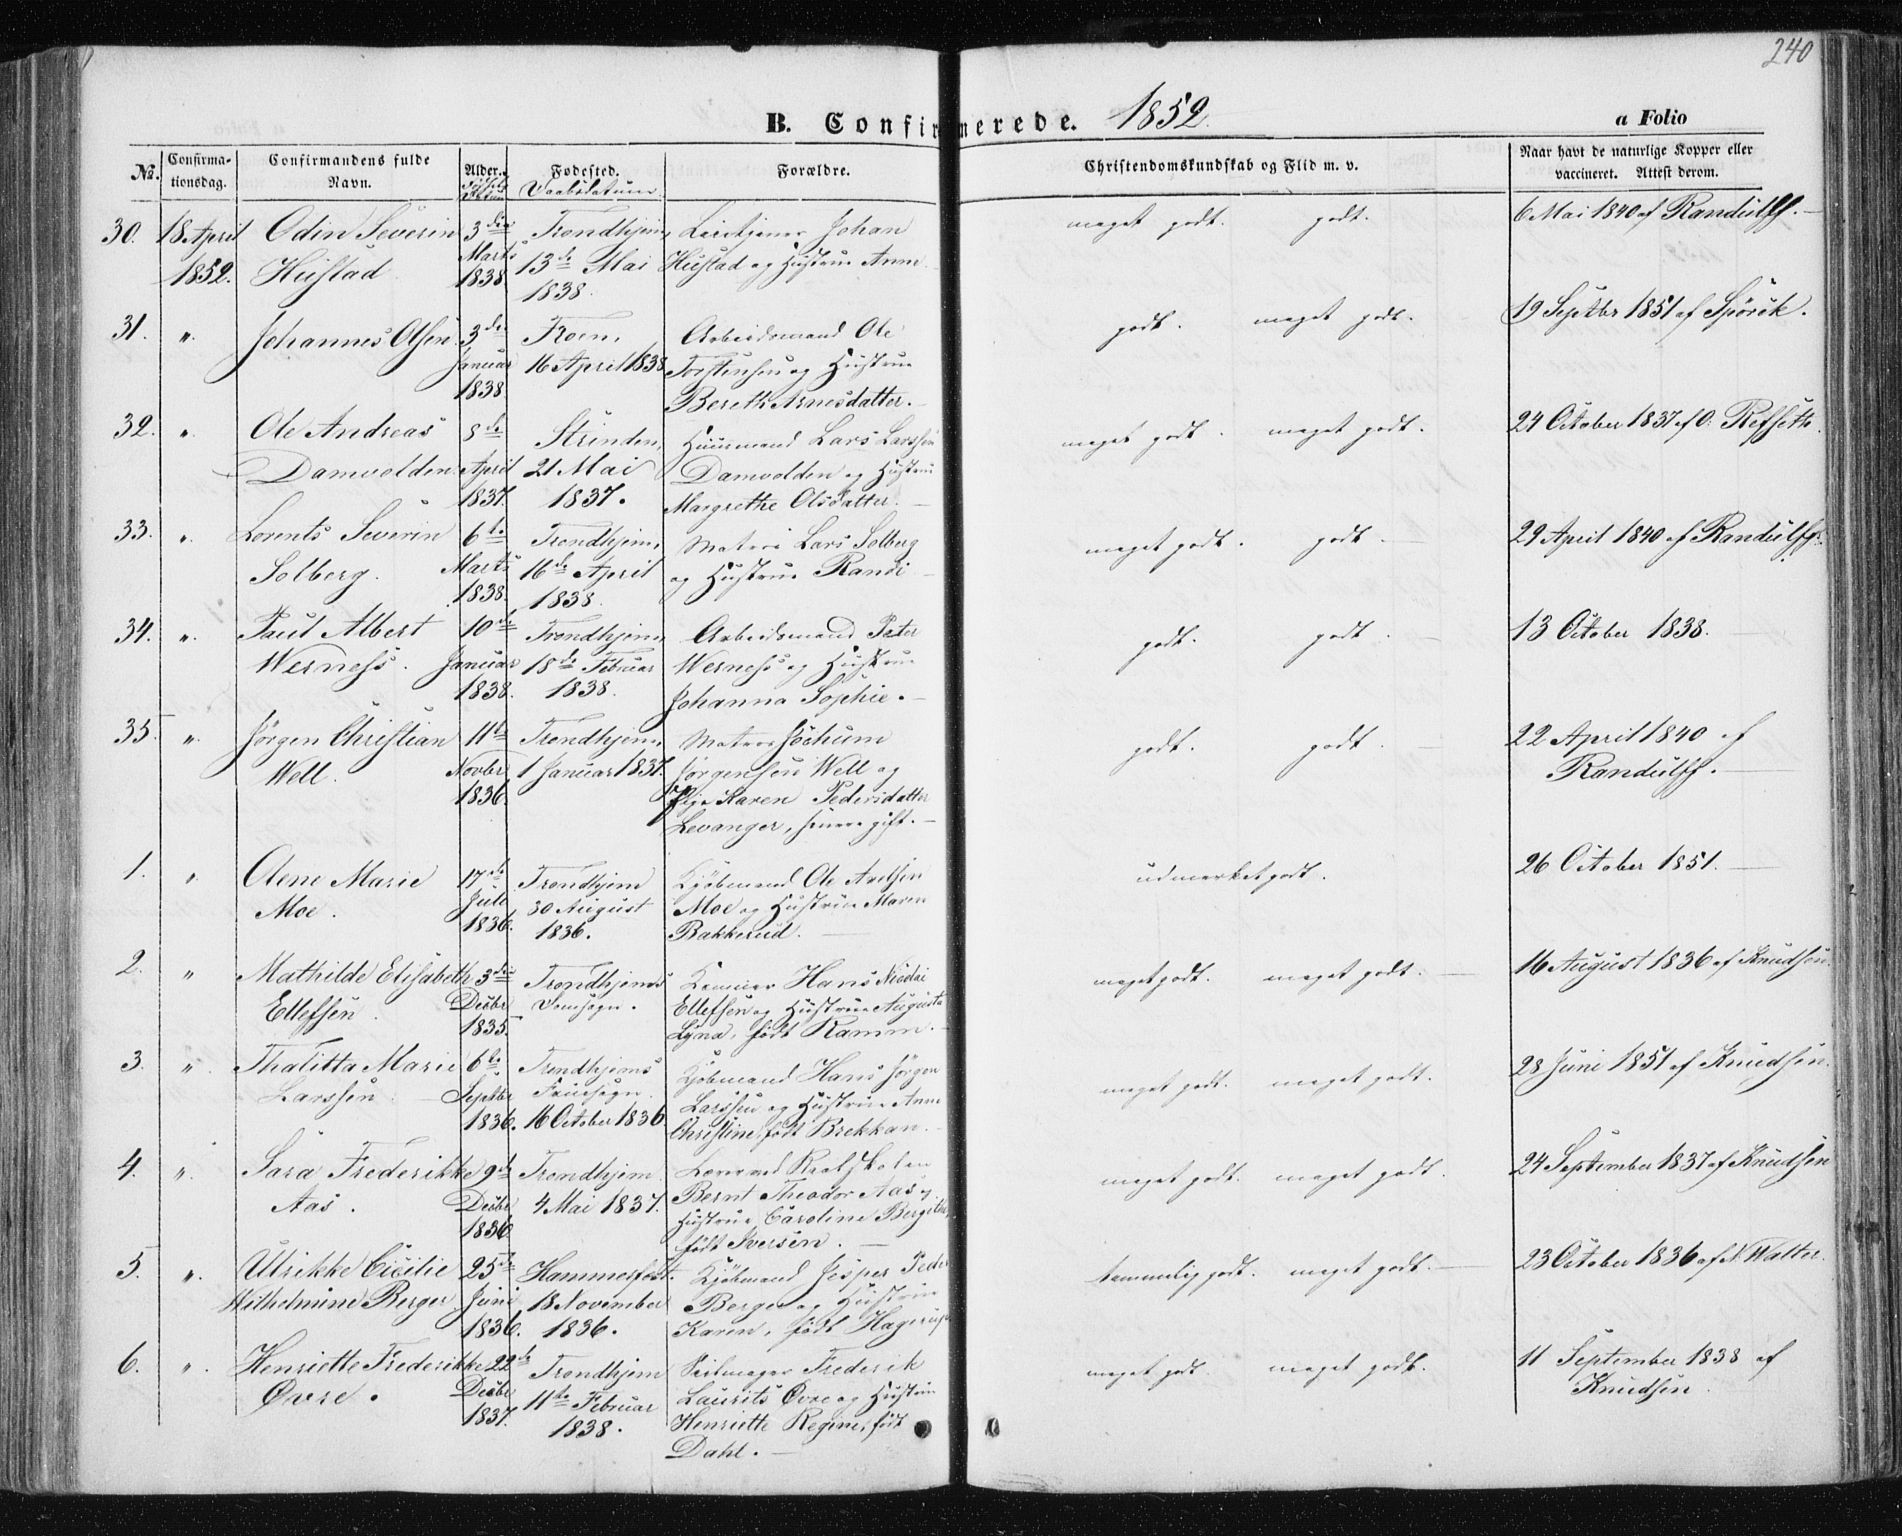 240
B. Confirmerede. 1852.
a Folio
No. Confirmationsdag. Confirmandens fulde Navn. Alder. Fødested. Daabsdatum. Forældre. Christendomskundskab og Flid m. v. Naar havt de naturlige Kopper eller vaccineret. Attest derom.
30. 18 April Odin Severin 3die Trondhjem, Johan meget godt. godt. 6 Mai 1840 af Randulff.
1852. Hustad Marts 13de Mai Hustad og Hustrue Anne
1838 1838.
31. " Johannes Olsen 3die Arbeidsmand Ole godt. meget godt. 19 Septbr 1851 af Spörck.
Januar 16 April 1838 Torstensen og Hustrue
1838. Bereth Arnesdatter.
32. " Ole Andreas 8de Strinden, Huusmand Lars Larssen meget godt. meget godt. 24 October 1837 af O. Refseth.
Damvolden April 21 Mai Damvolden og Hustrue
1837. 1837. Margrethe Olsdatter.
33. " Lorents Severin 6te Trondhjem, Matros Lars Solberg meget godt. godt. 29 April 1840 af Randulff.
Solberg. Marts 16de April og Hustrue Randi
1838. 1838.
34. " Paul Albert 10de Trondhjem, Arbeidsmand Peter godt. godt. 13 October 1838.
Werness. Januar 18de Februar Werness og Hustrue
1838. 1838. Johanna Sophie.
35. " Jørgen Christian 11te Trondhjem, Matros Jochum godt. godt. 22 April 1840 af
Well. Novbr 1 Januar 1837. Jørgensen Well og Randulff.
1836. Pige Karen Pedersdatter
Levanger, senere gift.
1. " Olene Marie 17de Trondhjem Kjöbmand Ole Axelsen udmerket godt. 26 October 1851.
Moe. Juli 30 August Moe og Hustrue Maren
1836. 1836. Bakkerud.
2. " Mathilde Elisabeth 3die Trondhjems Hans Nicolai meget godt. meget godt. 16 August 1836 af Knudsen.
Ellefsen. Decbr Domsogn. Ellefsen og Hustrue Augusta
1835. født Ramm.
3. " Thalitta Marie 6te Trondhjems Kjöbmand Hans Jörgen meget godt. meget godt. 28 Juni 1851 af Knudsen.
Larssen. Septbr Fruesogn. Larssen og Hustrue Anne
1836. 16 October 1836 Christine, født Brekkan.
4. " Sara Frederikke 9de Trondhjem Lærer ved Realskolen meget godt. meget godt. 24 September 1837 af Knudsen
Aas. Decbr 4 Mai 1837. Bernt Theodor Aas og
1836. Hustrue Caroline Bergitte,
født Iversen.
5. " Ulrikke Cicilie 25de Hammerfest. Kjöbmand Jesper Peder temmelig godt. meget godt. 23 October 1836 af N. Walter.
Wilhelmine Berger. Juni 18 November Berger og Hustrue
1836. 1836. Karen, født Hagerup.
6. " Henriette Frederikke 22de Trondhjem Seilmager Frederik meget godt. meget godt. 11 September 1838 af
Øvre. Decbr 11te Februar Laurits Øvre og Hustrue Knudsen.
1837. 1838. Henriette Regine, født
Dahl.